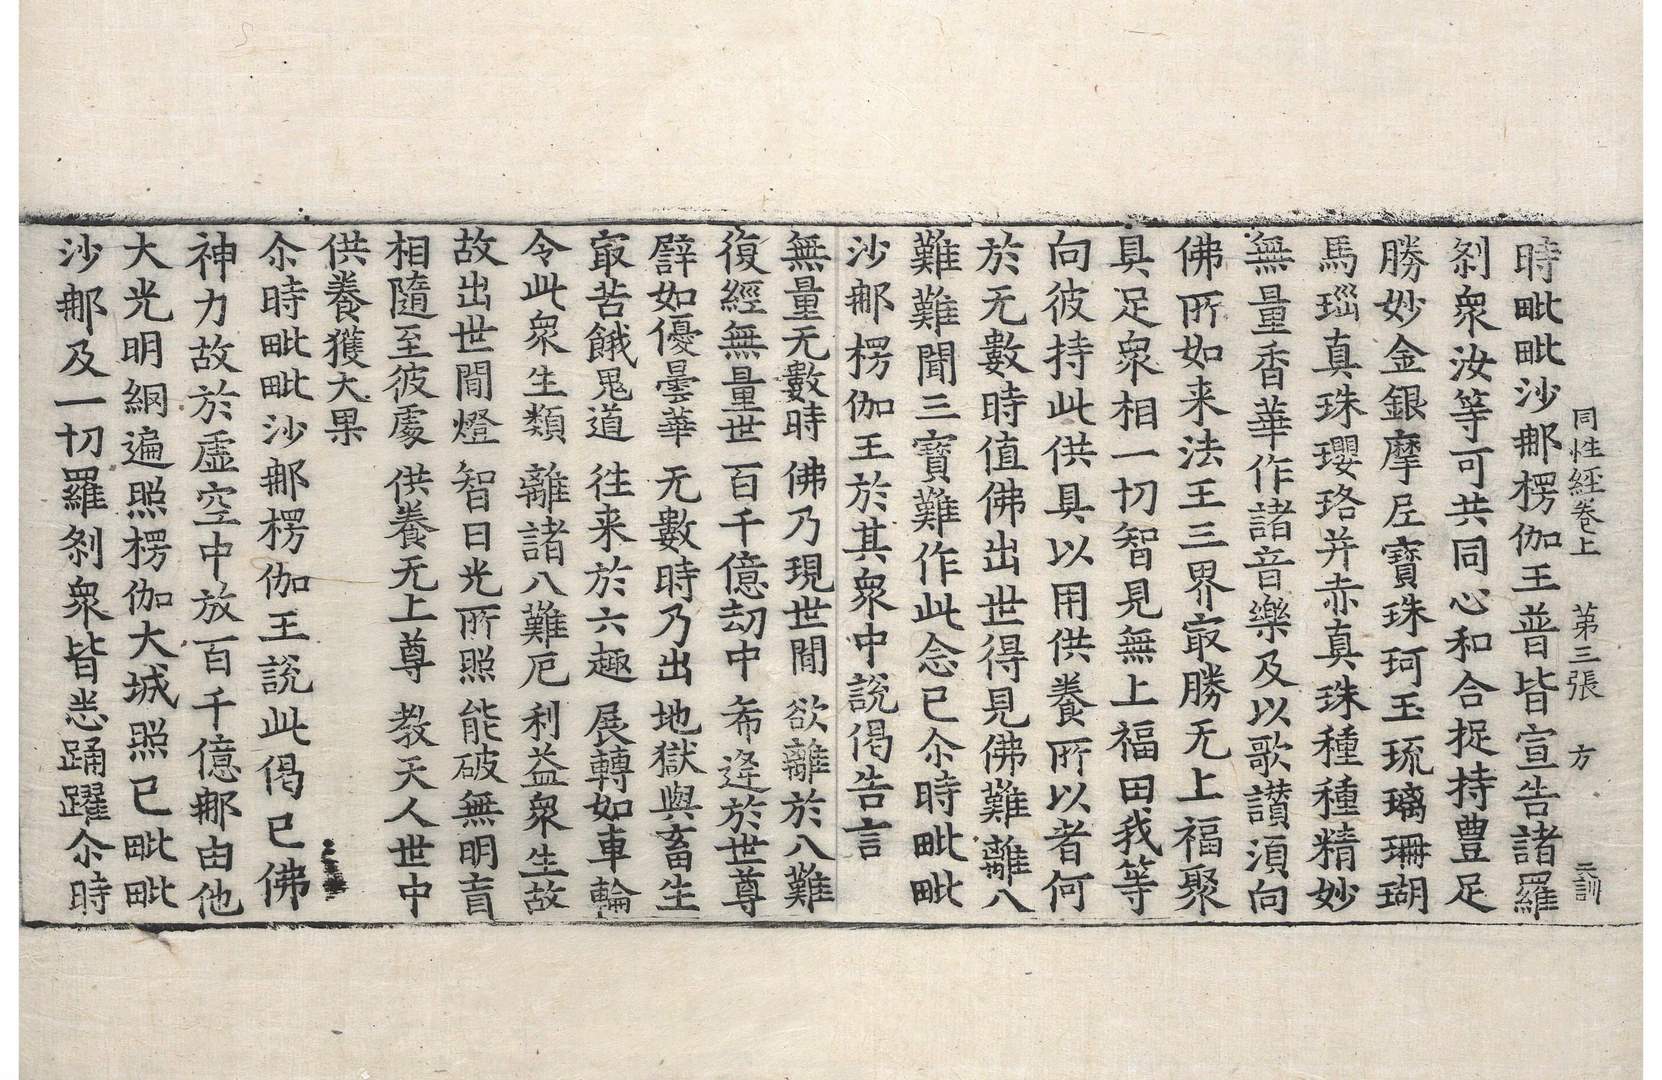 同性經卷上　第三張　方　二訓
時毗毗沙𨙻楞伽王普皆宣告諸羅
刹衆汝等可共同心和合捉持豊足
勝妙金銀摩𡰱寶珠珂玉琉璃珊瑚
馬瑙真珠瓔珞并赤真珠種種精妙
無量香華作諸音樂及以歌讃湏向
佛所如来法王三界㝡勝无上福聚
具足衆相一切智見無上福田我等
向彼持此供具以用供養所以者何
於无數時值佛出世得見佛難離八
難難聞三寶難作此念已尒時毗毗
沙𨙻楞伽王於其衆中說偈告言
無量无數時　佛乃現世間　欲離於八難
復經無量世　百千億劫中　希逢於世尊
譬如優曇華　无數時乃出　地獄與畜生
㝡苦餓鬼道　往来於六趣　展轉如車輪
令此衆生類　離諸八難厄　利益衆生故
故出世間燈　智日光所照　能破無明盲
相隨至彼處　供養无上尊　教天人世中
供養獲大果
尒時毗毗沙𨙻楞伽王說此偈已佛
神力故於虛空中放百千億𨙻由他
大光明網遍照楞伽大城照已毗毗
沙𨙻及一切羅刹衆皆悉踊躍尒時